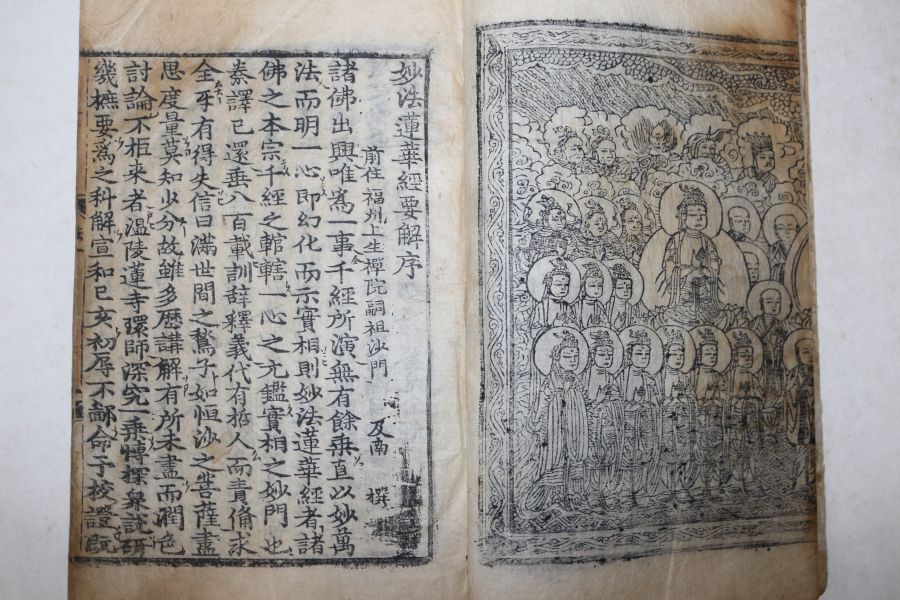 妙法蓮華經要解序
前住福州上生禪院嗣祖沙門 及南 撰
諸佛出興唯爲一事千經所演無有餘乗直以妙萬
法而明一心即幻化而示實相則妙法蓮華經者諸
佛之本宗千經之輨轄一心之元鑑實相之妙門也
秦譯已還垂八百載訓辞釋義代有哲人而責俻求
全乎有得失信曰滿世間之鶖子如恒沙之菩薩盡
思度量莫知少分故雖多歷講解有所未盡而潤色
討論不柜來者溫陵蓮寺環師深究一乗愽探衆說
幾樞要爲之科解宣和己亥初辱不鄙命予校證